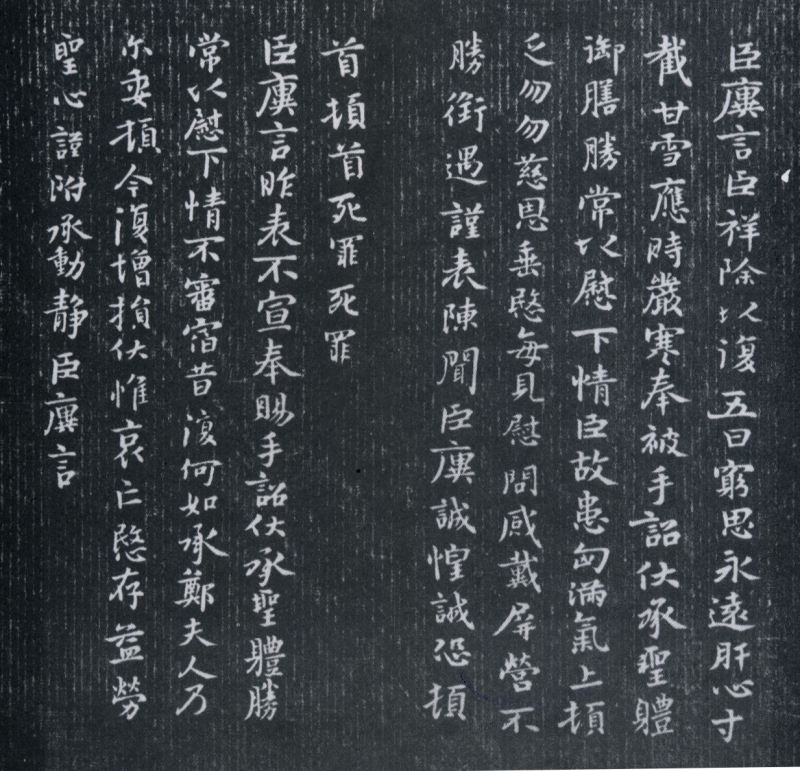 臣廙言臣祥除以復五日窮思永遠肝心寸
截甘雪應時嚴寒奉被手詔伏承聖體
御膳勝常以慰下情臣故患匈滿氣上頓
乏勿勿慈恩垂愍每見慰問感戴屏營不
勝銜遇謹表陳聞臣廙誠惶誠恐頓
首頓首死罪死罪
臣廙言昨表不宣奉賜手詔伏承聖體勝
常以慰下情不審宿昔復何如承鄭夫人乃
尒委頓今復增損伏惟哀亡愍存益勞
聖心謹附承動靜臣廙言